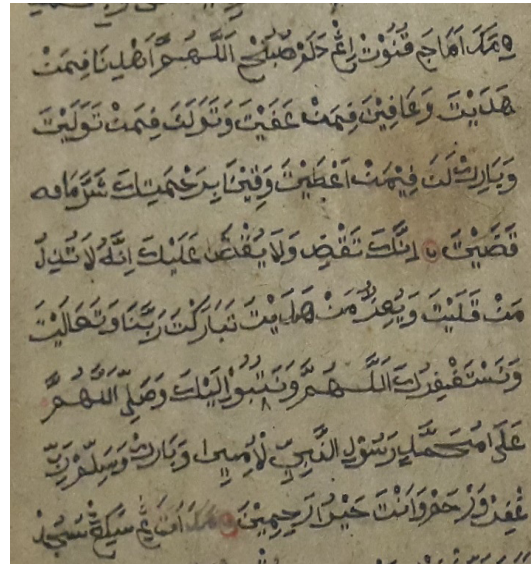 مک اماجم قنوت اغ دلم صبح اللهم اهدنا فيمن
هديت وعافين فيمن عفيت وتولك فيمن توليت
وبارك لن فيمن اعطيت وقنا برحمتك شر مافه
قضيت انك تقض ولا يقض عليك انه لا تذل
من قليت ويعز من هديت تباركت ربنا وتعاليت
ونستغفرك اللهم ونتبو اليك وصلي اللهم
على محمد رسول النبي لاميي وبارك وسلم رب
غفر ورحم وانت خير الرحمين مک